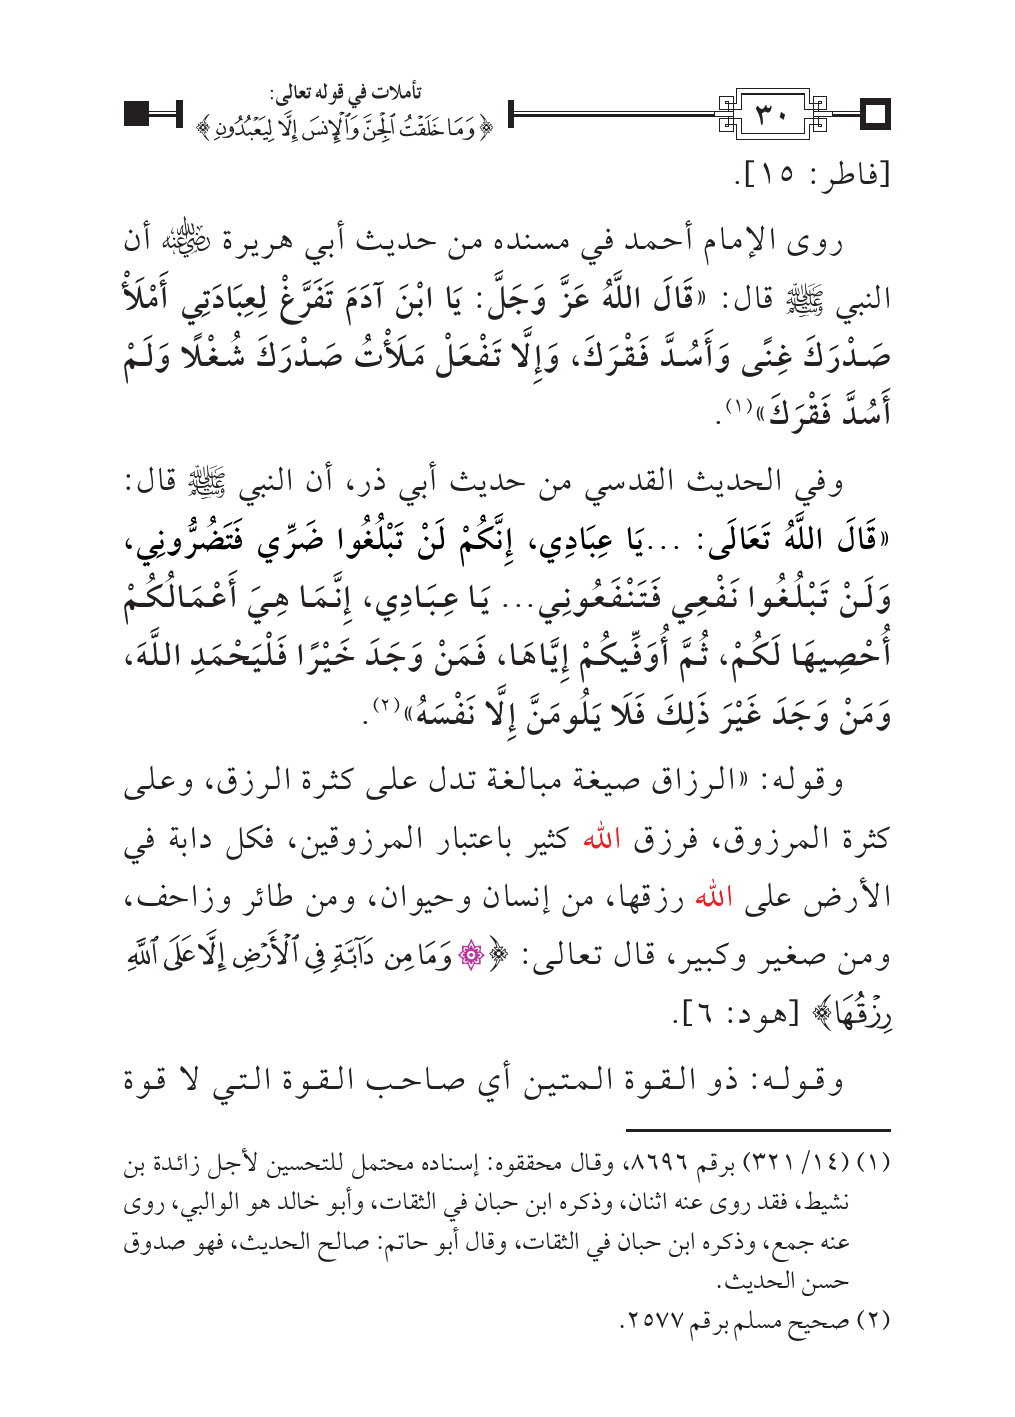 ٣٠
تأملات في قوله تعالى:
﴿ وَمَا خَلَقْتُ ٱلْجِنَّ وَٱلْإِنسَ إِلَّا لِيَعْبُدُونِ ﴾
[فاطر: ١٥].
روى الإمام أحمد في مسنده من حديث أبي هريرة رضي الله عنه أن
النبي ﷺ قال: «قَالَ اللَّهُ عَزَّ وَجَلَّ: يَا ابْنَ آدَمَ تَفَرَّغْ لِعِبَادَتِي أَمْلَأْ
صَدْرَكَ غِنًى وَأَسُدَّ فَقْرَكَ، وَإِلَّا تَفْعَلْ مَلَأْتُ صَدْرَكَ شُغْلًا وَلَمْ
أَسُدَّ فَقْرَكَ»(١).
وفي الحديث القدسي من حديث أبي ذر، أن النبي ﷺ قال:
«قَالَ اللَّهُ تَعَالَى: ...يَا عِبَادِي، إِنَّكُمْ لَنْ تَبْلُغُوا ضَرِّي فَتَضُرُّونِي،
وَلَنْ تَبْلُغُوا نَفْعِي فَتَنْفَعُونِي... يَا عِبَادِي، إِنَّمَا هِيَ أَعْمَالُكُمْ
أُحْصِيهَا لَكُمْ، ثُمَّ أُوَفِّيكُمْ إِيَّاهَا، فَمَنْ وَجَدَ خَيْرًا فَلْيَحْمَدِ اللَّهَ،
وَمَنْ وَجَدَ غَيْرَ ذَلِكَ فَلَا يَلُومَنَّ إِلَّا نَفْسَهُ»(٢).
وقوله: «الرزاق صيغة مبالغة تدل على كثرة الرزق، وعلى
كثرة المرزوق، فرزق الله كثير باعتبار المرزوقين، فكل دابة في
الأرض على الله رزقها، من إنسان وحيوان، ومن طائر وزاحف،
ومن صغير وكبير، قال تعالى: ﴿۞ وَمَا مِن دَآبَّةٍ فِى ٱلْأَرْضِ إِلَّا عَلَى ٱللَّهِ
رِزْقُهَا﴾ [هود: ٦].
وقوله: ذو القوة المتين أي صاحب القوة التي لا قوة
(١) (١٤/ ٣٢١) برقم ٨٦٩٦، وقال محققوه: إسناده محتمل للتحسين لأجل زائدة بن
نشيط، فقد روى عنه اثنان، وذكره ابن حبان في الثقات، وأبو خالد هو الوالبي، روى
عنه جمع، وذكره ابن حبان في الثقات، وقال أبو حاتم: صالح الحديث، فهو صدوق
حسن الحديث.
(٢) صحيح مسلم برقم ٢٥٧٧.